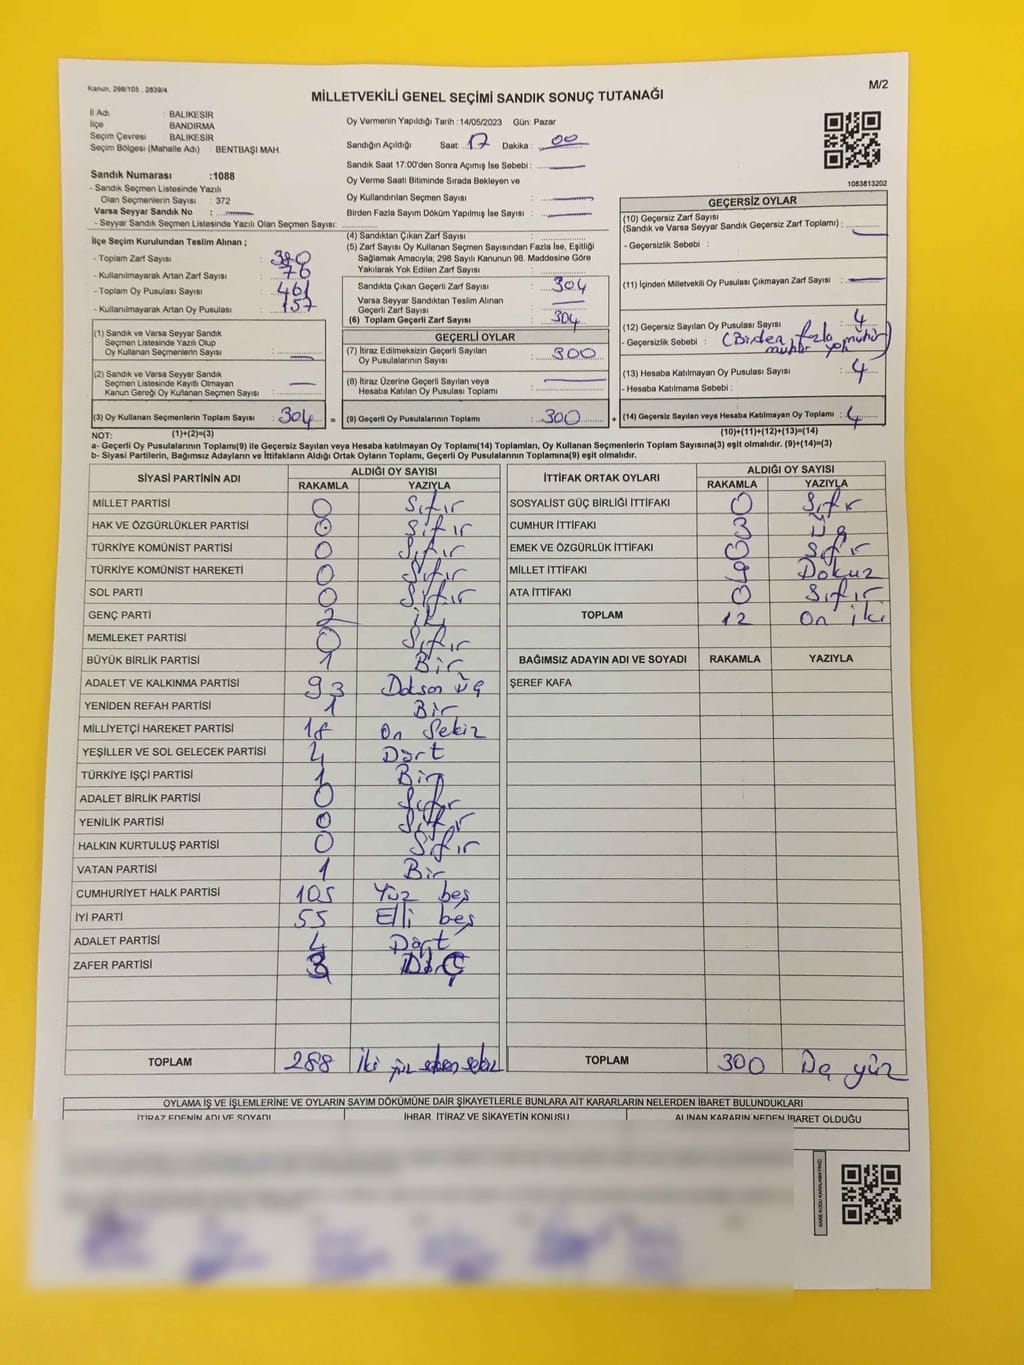 Kanun, 298/105 . 2839/4
M/2
MİLLETVEKİLİ GENEL SEÇİMİ SANDIK SONUÇ TUTANAĞI
İl Adı : BALIKESİR
İlçe : BANDIRMA
Seçim Çevresi : BALIKESİR
Seçim Bölgesi (Mahalle Adı) : BENTBAŞI MAH.
Sandık Numarası :1088
- Sandık Seçmen Listesinde Yazılı
Olan Seçmenlerin Sayısı : 372
Varsa Seyyar Sandık No :
- Seyyar Sandık Seçmen Listesinde Yazılı Olan Seçmen Sayısı:
Oy Vermenin Yapıldığı Tarih :14/05/2023 Gün: Pazar
Sandığın Açıldığı Saat: 17 Dakika : 00
Sandık Saat 17:00'den Sonra Açımış İse Sebebi :
Oy Verme Saati Bitiminde Sırada Bekleyen ve
Oy Kullandırılan Seçmen Sayısı :
Birden Fazla Sayım Döküm Yapılmış İse Sayısı :
1083813202
İlçe Seçim Kurulundan Teslim Alınan ;
- Toplam Zarf Sayısı : 380
- Kullanılmayarak Artan Zarf Sayısı : 76
- Toplam Oy Pusulası Sayısı : 461
- Kullanılmayarak Artan Oy Pusulası : 157
(1) Sandık ve Varsa Seyyar Sandık
Seçmen Listesinde Yazılı Olup
Oy Kullanan Seçmenlerin Sayısı :
(2) Sandık ve Varsa Seyyar Sandık
Seçmen Listesinde Kayıtlı Olmayan
Kanun Gereği Oy Kullanan Seçmen Sayısı :
(3) Oy Kullanan Seçmenlerin Toplam Sayısı : 304 =
(1)+(2)=(3)
(4) Sandıktan Çıkan Zarf Sayısı :
(5) Zarf Sayısı Oy Kullanan Seçmen Sayısından Fazla İse, Eşitliği
Sağlamak Amacıyla; 298 Sayılı Kanunun 98. Maddesine Göre
Yakılarak Yok Edilen Zarf Sayısı :
Sandıkta Çıkan Geçerli Zarf Sayısı : 304
Varsa Seyyar Sandıktan Teslim Alınan
Geçerli Zarf Sayısı :
(6) Toplam Geçerli Zarf Sayısı : 304
GEÇERLİ OYLAR
(7) İtiraz Edilmeksizin Geçerli Sayılan
Oy Pusulalarının Sayısı : 300
(8) İtiraz Üzerine Geçerli Sayılan veya
Hesaba Katılan Oy Pusulası Toplamı :
(9) Geçerli Oy Pusulalarının Toplamı : 300 +
GEÇERSİZ OYLAR
(10) Geçersiz Zarf Sayısı
(Sandık ve Varsa Seyyar Sandık Geçersiz Zarf Toplamı) :
- Geçersizlik Sebebi :
(11) İçinden Milletvekili Oy Pusulası Çıkmayan Zarf Sayısı :
(12) Geçersiz Sayılan Oy Pusulası Sayısı : 4
- Geçersizlik Sebebi : (Birden fazla mühür)
mühür yok
(13) Hesaba Katılmayan Oy Pusulası Sayısı : 4
- Hesaba Katılmama Sebebi :
(14) Geçersiz Sayılan veya Hesaba Katılmayan Oy Toplamı : 4
(10)+(11)+(12)+(13)=(14)
NOT:
a- Geçerli Oy Pusulalarının Toplamı(9) ile Geçersiz Sayılan veya Hesaba katılmayan Oy Toplamı(14) Toplamları, Oy Kullanan Seçmenlerin Toplam Sayısına(3) eşit olmalıdır. (9)+(14)=(3)
b- Siyasi Partilerin, Bağımsız Adayların ve İttifakların Aldığı Ortak Oyların Toplamı, Geçerli Oy Pusulalarının Toplamına(9) eşit olmalıdır.
SİYASİ PARTİNİN ADI ALDIĞI OY SAYISI
RAKAMLA YAZIYLA
MİLLET PARTİSİ 0 Sıfır
HAK VE ÖZGÜRLÜKLER PARTİSİ 0 Sıfır
TÜRKİYE KOMÜNİST PARTİSİ 0 Sıfır
TÜRKİYE KOMÜNİST HAREKETİ 0 Sıfır
SOL PARTİ 0 Sıfır
GENÇ PARTİ 2 iki
MEMLEKET PARTİSİ 0 Sıfır
BÜYÜK BİRLİK PARTİSİ 1 Bir
ADALET VE KALKINMA PARTİSİ 93 Doksan üç
YENİDEN REFAH PARTİSİ 1 Bir
MİLLİYETÇİ HAREKET PARTİSİ 18 On Sekiz
YEŞİLLER VE SOL GELECEK PARTİSİ 4 Dört
TÜRKİYE İŞÇİ PARTİSİ 1 Bir
ADALET BİRLİK PARTİSİ 0 Sıfır
YENİLİK PARTİSİ 0 Sıfır
HALKIN KURTULUŞ PARTİSİ 0 Sıfır
VATAN PARTİSİ 1 Bir
CUMHURİYET HALK PARTİSİ 105 Yüz beş
İYİ PARTİ 55 Elli beş
ADALET PARTİSİ 4 Dört
ZAFER PARTİSİ 3
TOPLAM 288 İki yüz seksen sekiz
İTTİFAK ORTAK OYLARI ALDIĞI OY SAYISI
RAKAMLA YAZIYLA
SOSYALİST GÜÇ BİRLİĞİ İTTİFAKI 0 Sıfır
CUMHUR İTTİFAKI 3 Üç
EMEK VE ÖZGÜRLÜK İTTİFAKI 0 Sıfır
MİLLET İTTİFAKI 9 Dokuz
ATA İTTİFAKI 0 Sıfır
TOPLAM 12 On iki
BAĞIMSIZ ADAYIN ADI VE SOYADI RAKAMLA YAZIYLA
ŞEREF KAFA
TOPLAM 300 Üç yüz
OYLAMA İŞ VE İŞLEMLERİNE VE OYLARIN SAYIM DÖKÜMÜNE DAİR ŞİKAYETLERLE BUNLARA AİT KARARLARIN NELERDEN İBARET BULUNDUKLARI
İTİRAZ EDENİN ADI VE SOYADI İHBAR, İTİRAZ VE ŞİKAYETİN KONUSU ALINAN KARARIN NEDEN İBARET OLDUĞU
KARE KODU KARALAMAYINIZ!